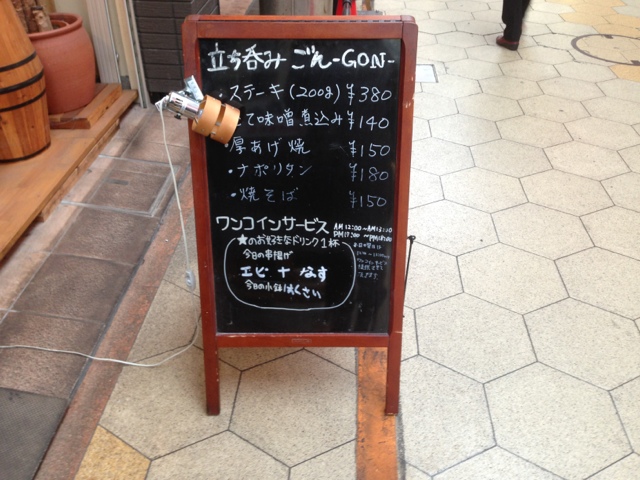 立ち呑み ごん -GON-
・ステーキ(200g) ¥380
て味噌煮込み ¥140
・厚あげ焼 ¥150
・ナポリタン ¥180
・焼そば ¥150
ワンコインサービス
AM12:00 ~AM13:00
PM17:00 ~PM18:00
★のお好きなドリンク1杯
今日の串揚げ
エビ + なす
今日の小鉢 はくさい